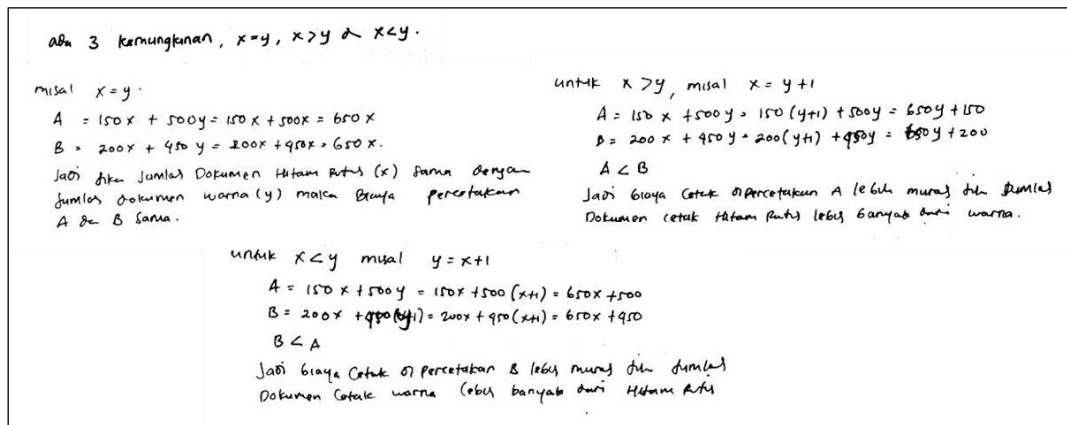 ada 3 kemungkinan, x=y, x>y & x<y.
misal x=y.
A = 150x + 500y = 150x + 500x = 650x
B = 200x + 450y = 200x + 450x = 650x.
Jadi jika Jumlah Dokumen Hitam Putih (x) sama dengan
Jumlah dokumen warna (y) maka Biaya percetakan
A dan B sama.
untuk x>y, misal x = y+1
A = 150x + 500y = 150(y+1) + 500y = 650y + 150
B = 200x + 450y = 200(y+1) + 450y = 650y + 200
A < B
Jadi biaya cetak di percetakan A lebih murah jika Jumlah
Dokumen cetak Hitam Putih lebih banyak dari warna.
untuk x<y misal y = x+1
A = 150x + 500y = 150x + 500(x+1) = 650x + 500
B = 200x + 450(x+1) = 200x + 450(x+1) = 650x + 450
B < A
Jadi biaya Cetak di percetakan B lebih murah jika Jumlah
Dokumen Cetak warna lebih banyak dari Hitam Putih